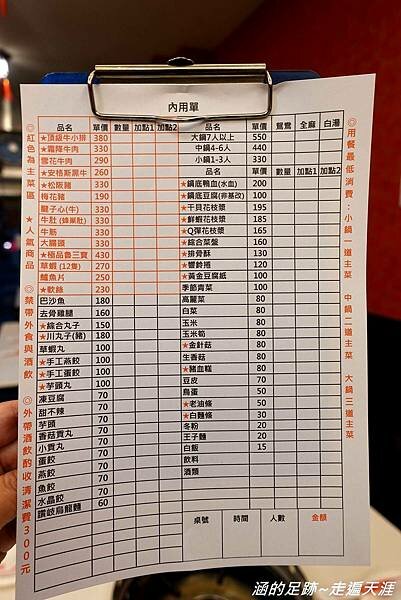 內用單
◎紅色為主菜區 ★人氣商品 ◎禁帶外食與酒飲 ◎外帶酒飲酌收清潔費300元
品名 單價 數量 加點1 加點2
★頂級牛小排 380
★霜降牛肉 330
雪花牛肉 290
★安格斯黑牛 260
★松阪豬 330
梅花豬 190
腱子心(牛) 330
牛肚(蜂巢肚) 330
牛筋 330
大腸頭 330
★極品魯三寶 430
草蝦(12隻) 270
鱸魚片 250
★軟絲 230
巴沙魚 180
去骨雞腿 160
★綜合丸子 150
★川丸子(豬) 180
草蝦丸 100
★手工燕餃 100
★手工蛋餃 100
★芋頭丸 100
凍豆腐 70
甜不辣 70
芋頭 70
香菇貢丸 70
小貢丸 70
蛋餃 70
燕餃 70
魚餃 70
水晶餃 70
讚岐烏龍麵 60
品名 單價 鴛鴦 全麻 白湯
大鍋7人以上 550
中鍋4-6人 440
小鍋1-3人 330
品名 單價 數量 加點1 加點2
★鍋底鴨血(水血) 200
★鍋底豆腐(非基改) 100
★干貝花枝漿 195
★鮮蝦花枝漿 185
★Q彈花枝漿 165
★綜合菜盤 160
★排骨酥 130
★響鈴捲 120
★黃金豆腐紙 100
季節青菜 100
高麗菜 80
白菜 80
玉米 80
玉米筍 80
★金針菇 80
生香菇 80
★豬血糕 80
豆皮 70
鳥蛋 50
★老油條 50
★白麵條 30
冬粉 20
王子麵 20
白飯 15
飲料
酒類
桌號 時間 人數 金額
◎用餐最低消費:小鍋一道主菜 中鍋二道主菜 大鍋三道主菜
涵的足跡~走遍天涯